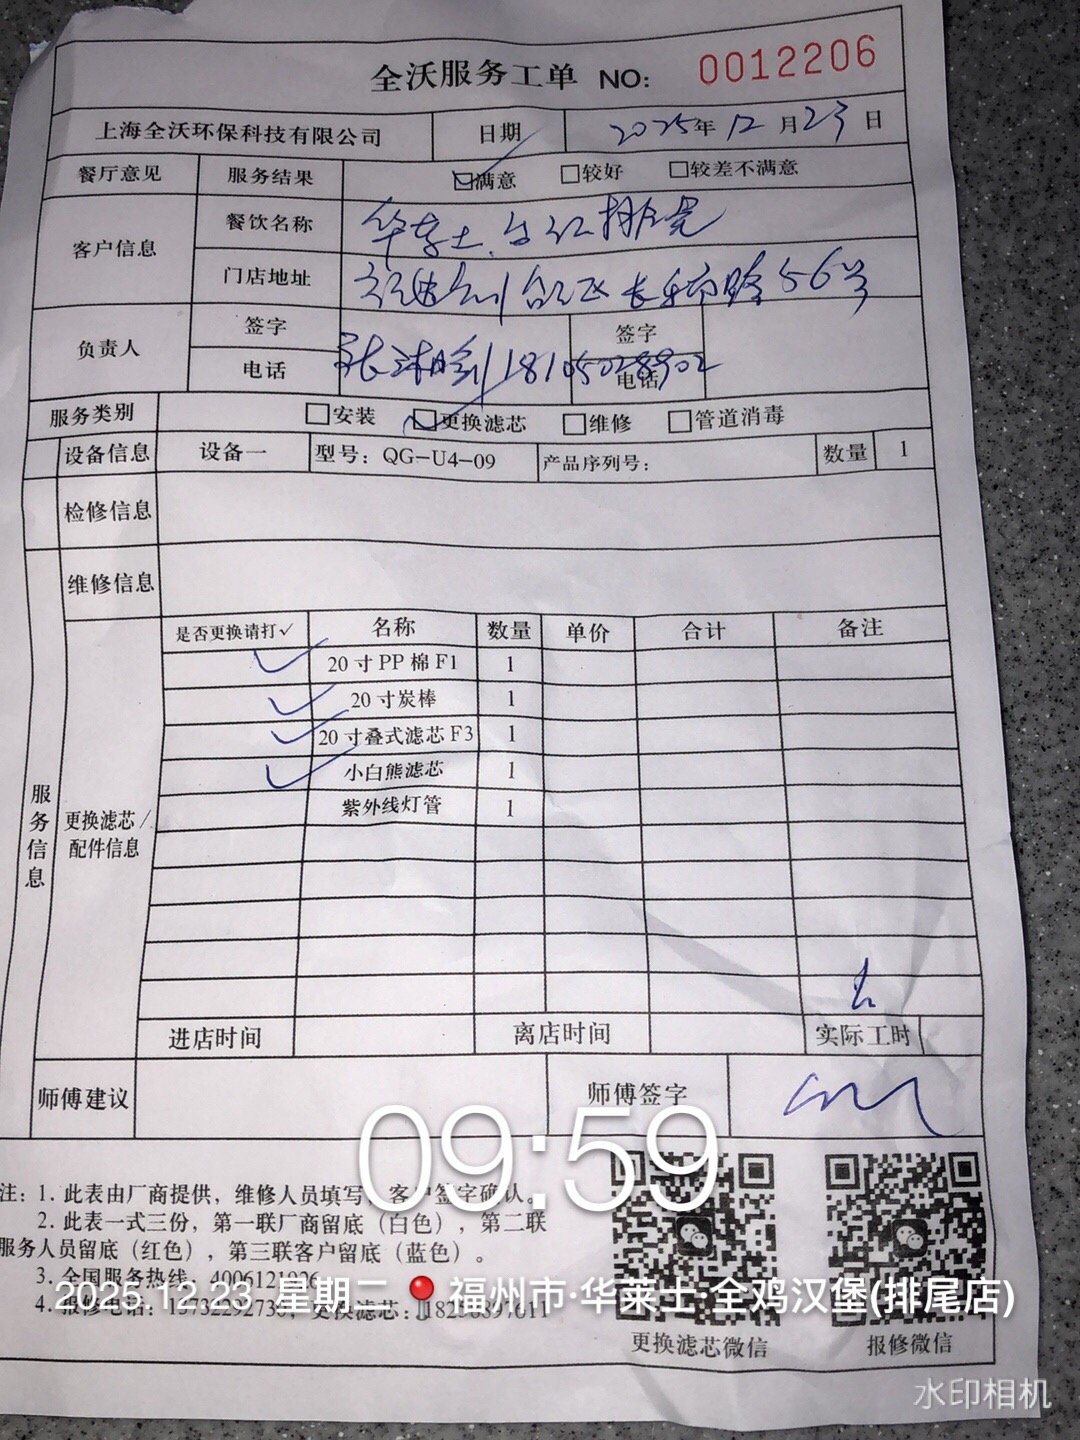 全沃服务工单 NO: 0012206
上海全沃环保科技有限公司 日期 2025年12月23日
餐厅意见 服务结果 ☑满意 □较好 □较差不满意
客户信息 餐饮名称 华莱士
门店地址 56号
负责人 签字 签字
电话 18105028902 电话
服务类别 □安装 ☑更换滤芯 □维修 □管道消毒
设备信息 设备一 型号：QG-U4-09 产品序列号： 数量 1
检修信息
维修信息
是否更换请打✓ 名称 数量 单价 合计 备注
✓ 20寸PP棉F1 1
✓ 20寸炭棒 1
✓ 20寸叠式滤芯F3 1
✓ 小白熊滤芯 1
紫外线灯管 1
服务信息
更换滤芯/
配件信息
进店时间 离店时间 实际工时
师傅建议 师傅签字
09:59
注：1. 此表由厂商提供，维修人员填写，客户签字确认。
2. 此表一式三份，第一联厂商留底（白色），第二联
服务人员留底（红色），第三联客户留底（蓝色）。
3. 全国服务热线：
2025.12.23 星期二 福州市·华莱士·全鸡汉堡(排尾店)
4. 报修电话： 更换滤芯：
更换滤芯微信 报修微信
水印相机